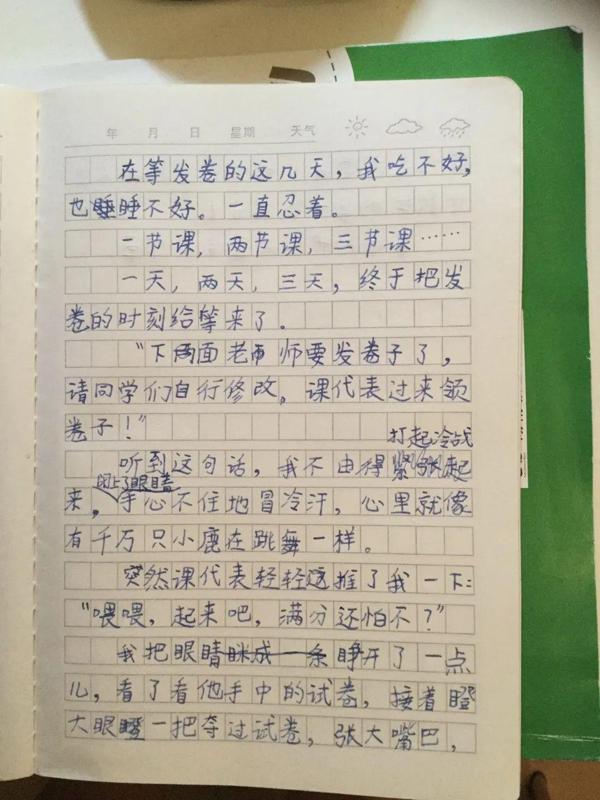 年 月 日 星期 天气
在等发卷的这几天，我吃不好，
也睡睡不好。一直忍着。
一节课，两节课，三节课……
一天，两天，三天，终于把发
卷的时刻给等来了。
“下面老师要发卷子了，
请同学们自行修改。课代表过来领
卷子！”
打起冷战
听到这句话，我不由得紧张起
闭上了眼睛
来，手心不住地冒冷汗，心里就像
有千万只小鹿在跳舞一样。
突然课代表轻轻推了我一下：
“喂喂，起来吧，满分还怕不？”
我把眼睛眯成一条睁开了一点
儿，看了看他手中的试卷，接着瞪
大眼瞪一把夺过试卷，张大嘴巴，